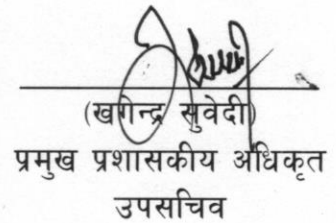 (खगेन्द्र सुवेदी)
प्रमुख प्रशासकीय अधिकृत
उपसचिव